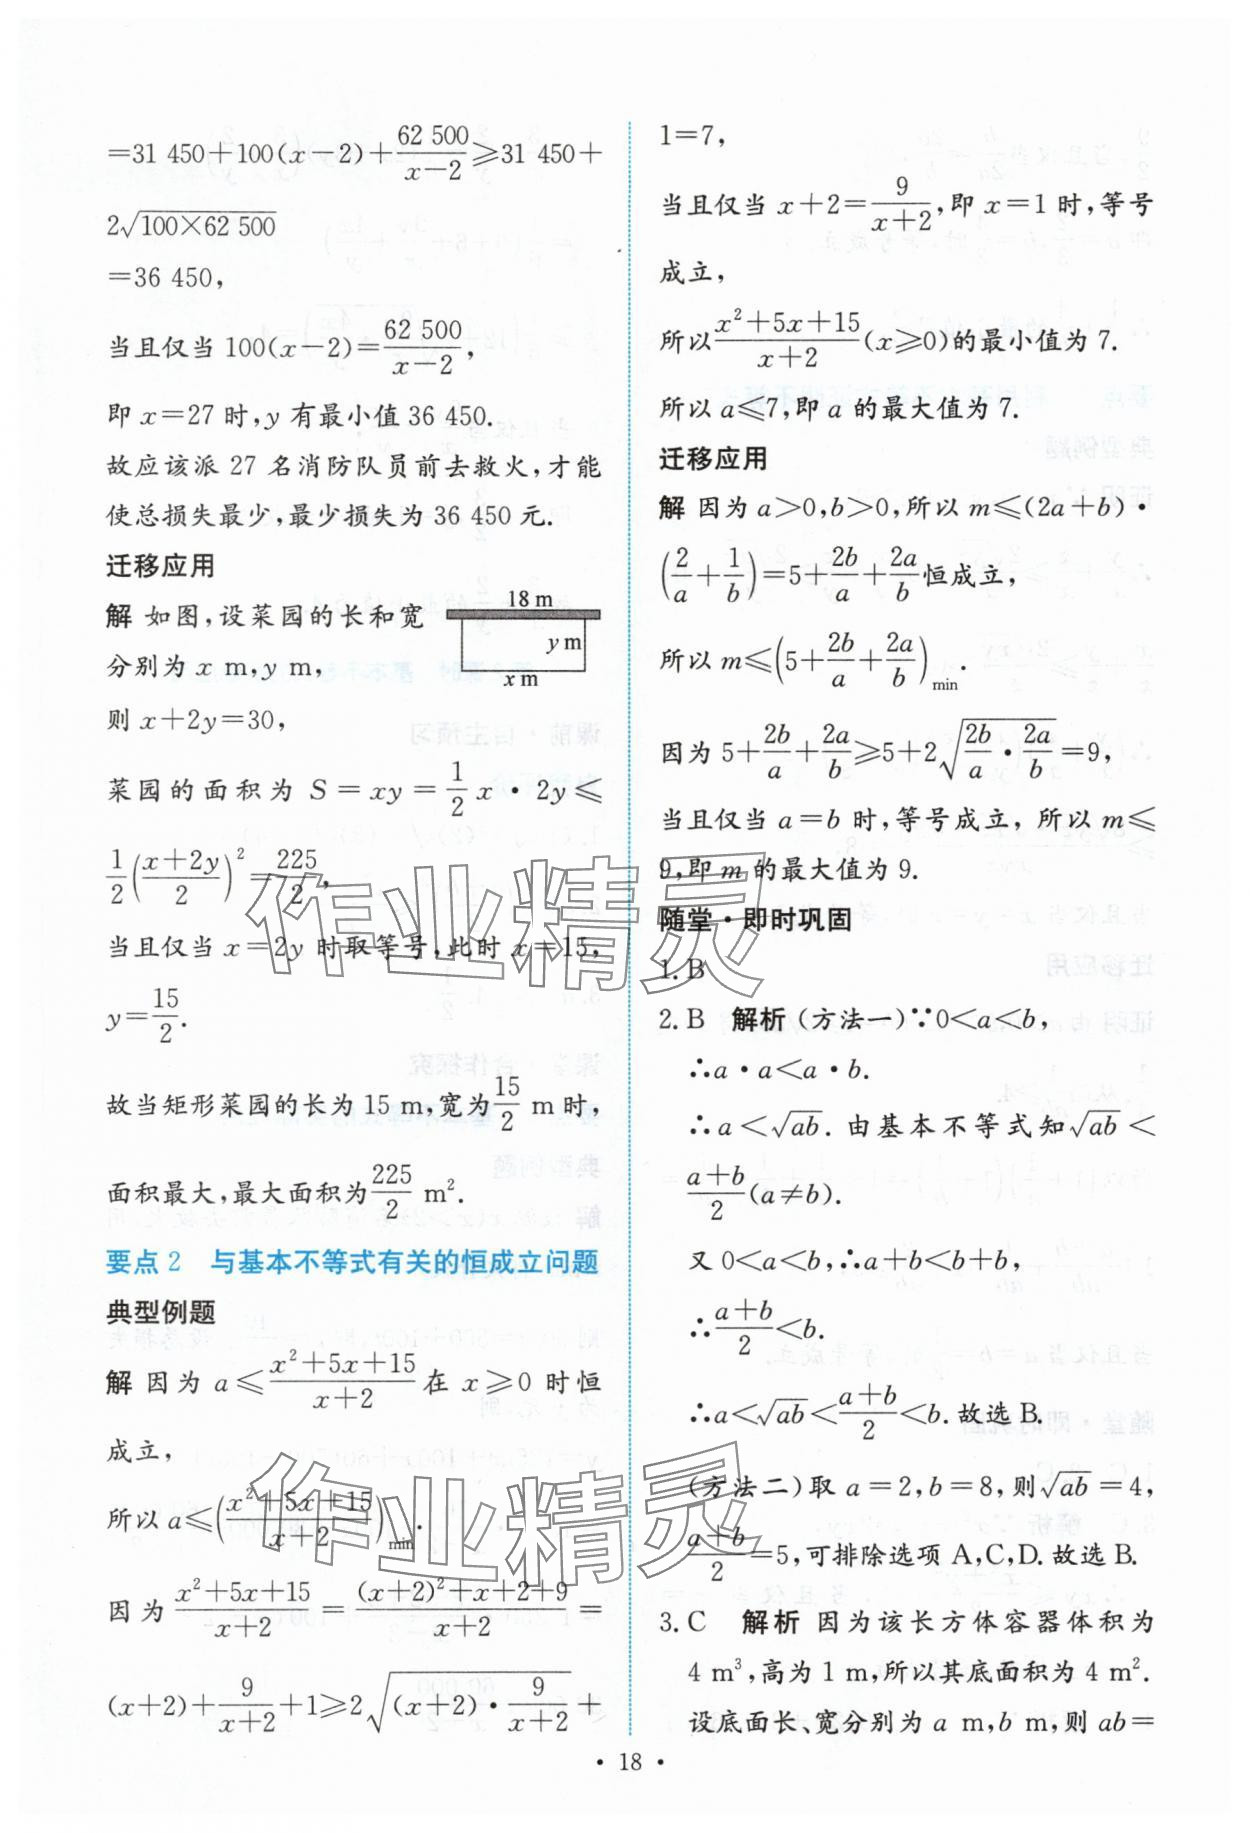 =31 450+100(x-2)+\frac{62 500}{x-2}≥31 450+
2\sqrt{100×62 500}
=36 450,
当且仅当 100(x-2)=\frac{62 500}{x-2},
即 x=27 时,y 有最小值 36 450.
故应该派 27 名消防队员前去救火,才能
使总损失最少,最少损失为 36 450 元.
迁移应用
解 如图,设菜园的长和宽
分别为 x m,y m,
则 x+2y=30,
18 m
y m
x m
菜园的面积为 S=xy=\frac{1}{2}x·2y≤
\frac{1}{2}(\frac{x+2y}{2})^2=\frac{225}{2},
当且仅当 x=2y 时取等号,此时 x=15,
y=\frac{15}{2}.
故当矩形菜园的长为 15 m,宽为\frac{15}{2} m时,
面积最大,最大面积为\frac{225}{2} m².
要点 2 与基本不等式有关的恒成立问题
典型例题
解 因为 a≤\frac{x²+5x+15}{x+2} 在 x≥0 时恒
成立,
所以 a≤(\frac{x²+5x+15}{x+2})_{min}.
因为\frac{x²+5x+15}{x+2}=\frac{(x+2)²+x+2+9}{x+2}=
(x+2)+\frac{9}{x+2}+1≥2\sqrt{(x+2)·\frac{9}{x+2}}+
1=7,
当且仅当 x+2=\frac{9}{x+2},即 x=1 时,等号
成立,
所以\frac{x²+5x+15}{x+2}(x≥0)的最小值为 7.
所以 a≤7,即 a 的最大值为 7.
迁移应用
解 因为 a>0,b>0,所以 m≤(2a+b)·
(\frac{2}{a}+\frac{1}{b})=5+\frac{2b}{a}+\frac{2a}{b}恒成立,
所以 m≤(5+\frac{2b}{a}+\frac{2a}{b})_{min}.
因为 5+\frac{2b}{a}+\frac{2a}{b}≥5+2\sqrt{\frac{2b}{a}·\frac{2a}{b}}=9,
当且仅当 a=b 时,等号成立,所以 m≤
9,即 m 的最大值为 9.
随堂·即时巩固
1. B
2. B 解析 (方法一)∵0<a<b,
∴a·a<a·b.
∴a<\sqrt{ab}. 由基本不等式知\sqrt{ab}<
\frac{a+b}{2}(a≠b).
又 0<a<b,∴a+b<b+b,
∴\frac{a+b}{2}<b.
∴a<\sqrt{ab}<\frac{a+b}{2}<b.故选 B.
(方法二)取 a=2,b=8,则\sqrt{ab}=4,
\frac{a+b}{2}=5,可排除选项 A,C,D.故选 B.
3. C 解析 因为该长方体容器体积为
4 m³,高为 1 m,所以其底面积为 4 m².
设底面长、宽分别为 a m,b m,则 ab=
· 18 ·
作业精灵
作业精灵